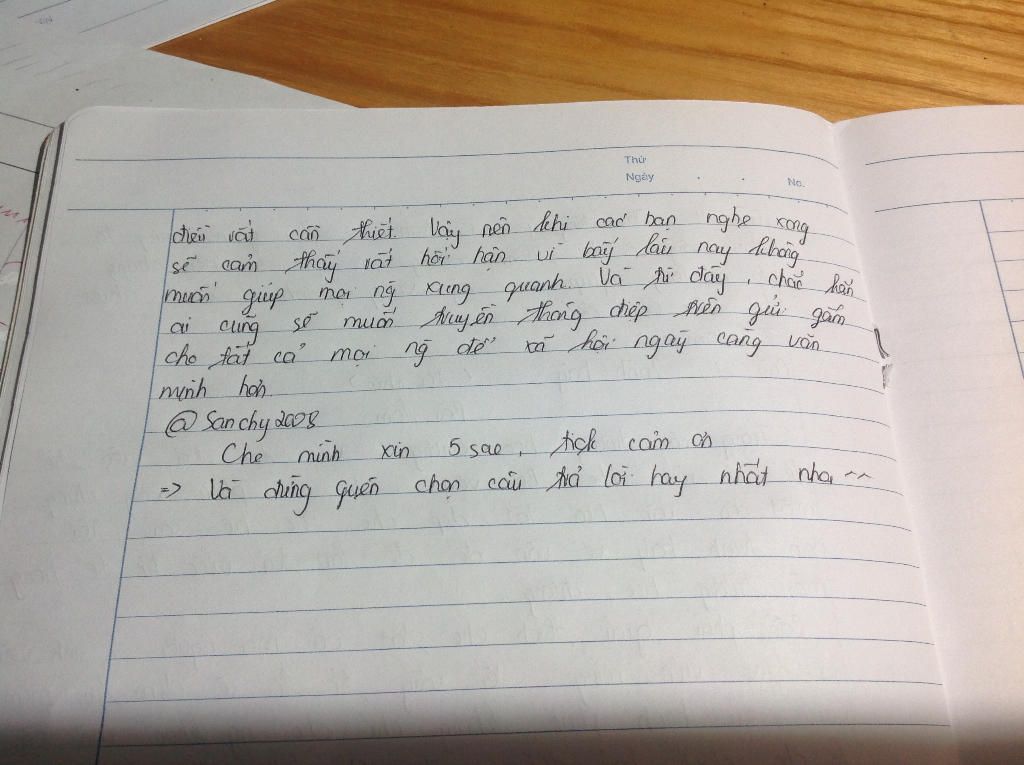 Thứ
Ngày . . No.
điều rất cần thiết. Vậy nên khi các bạn nghe xong
sẽ cảm thấy rất hối hận vì bấy lâu nay không
muốn giúp mọi ng xung quanh. Và từ đây, chắc hẳn
ai cũng sẽ muốn truyền thông điệp trên gửi gắm
cho tất cả mọi ng để xã hội ngày càng văn
minh hơn.
@Sanchy2008
Cho mình xin 5 sao, tick cảm ơn
=> Và đừng quên chọn câu trả lời hay nhất nha ^^